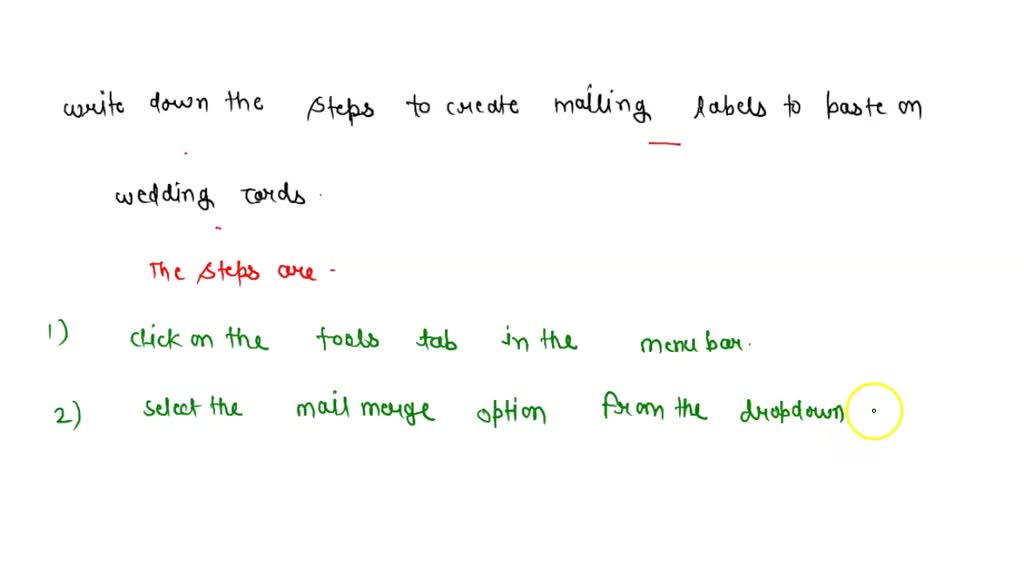 write down the steps to create mailling labels to paste on
wedding cards.
The steps are -
1) click on the tools tab in the menu bar.
2) select the mail merge option from the dropdown